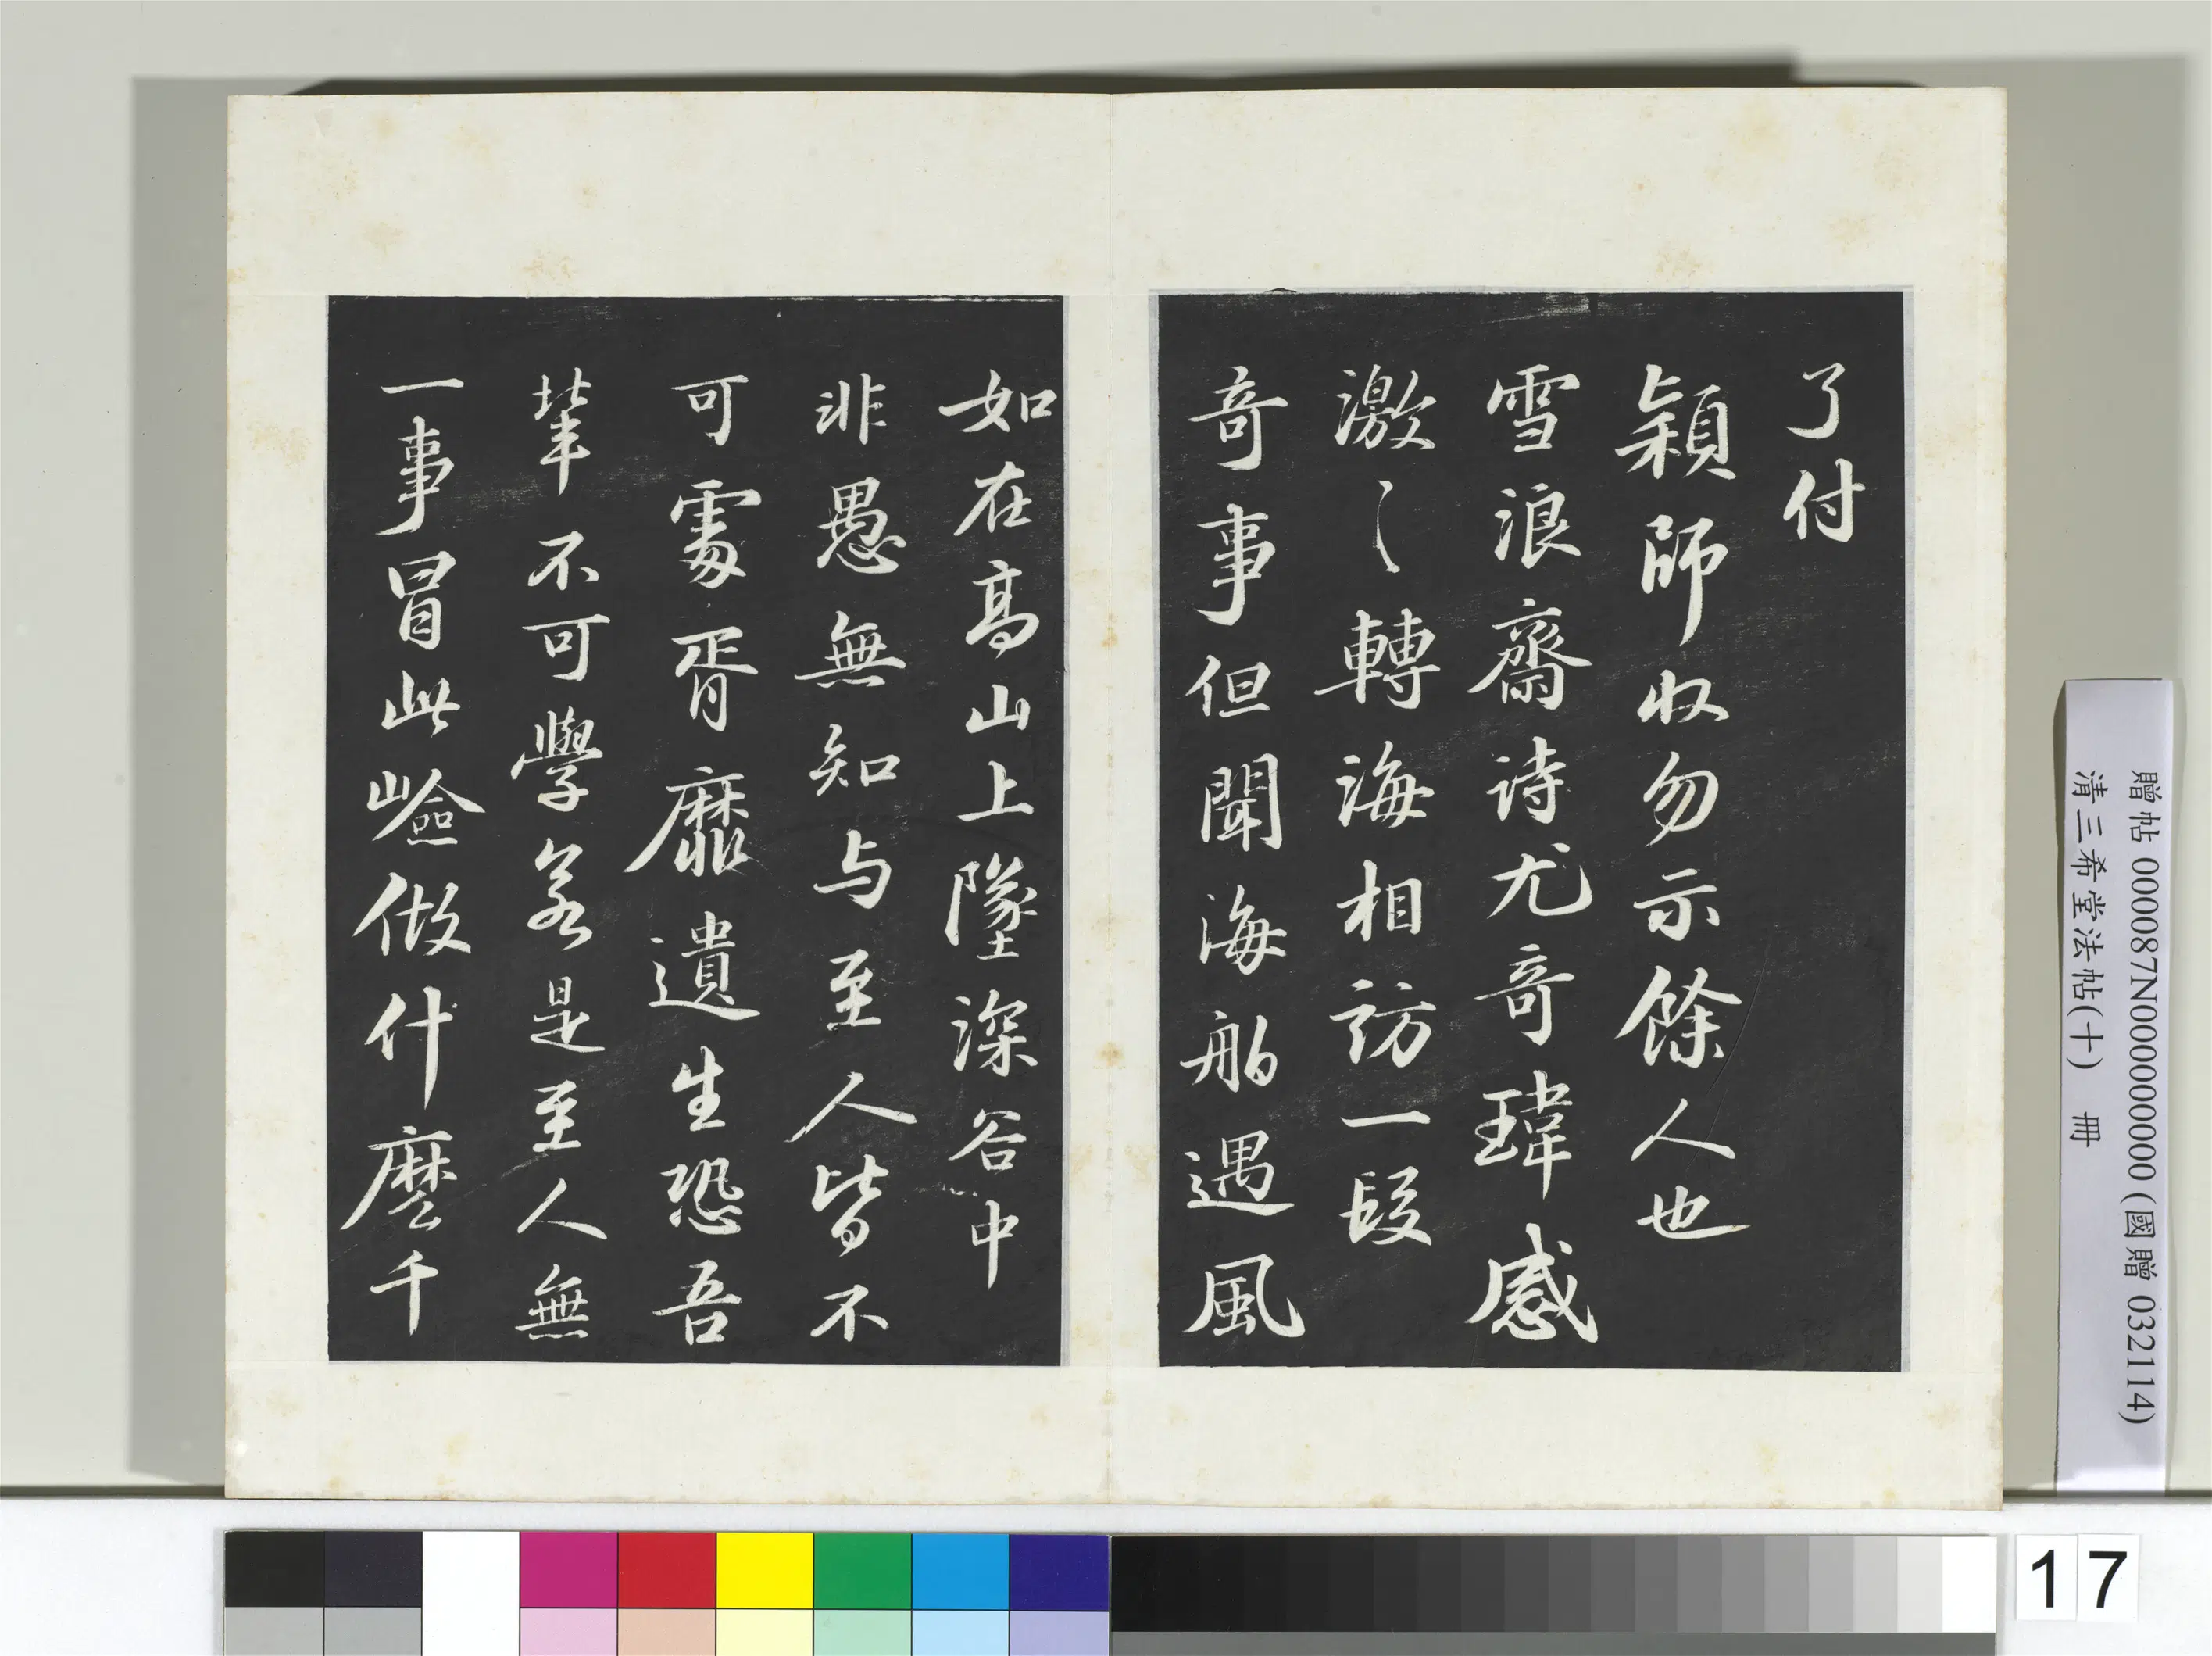 了付
穎師收勿示餘人也
雪浪齋诗尤奇瑋感
激〻轉海相訪一段
奇事但聞海舶遇風
如在高山上墜深谷中
非愚無知与至人皆不
可處胥靡遺生恐吾
輩不可學若是至人無
一事冒此嶮做什麽千
贈帖 000087N000000000 (國贈 032114)
清三希堂法帖(十) 冊
17